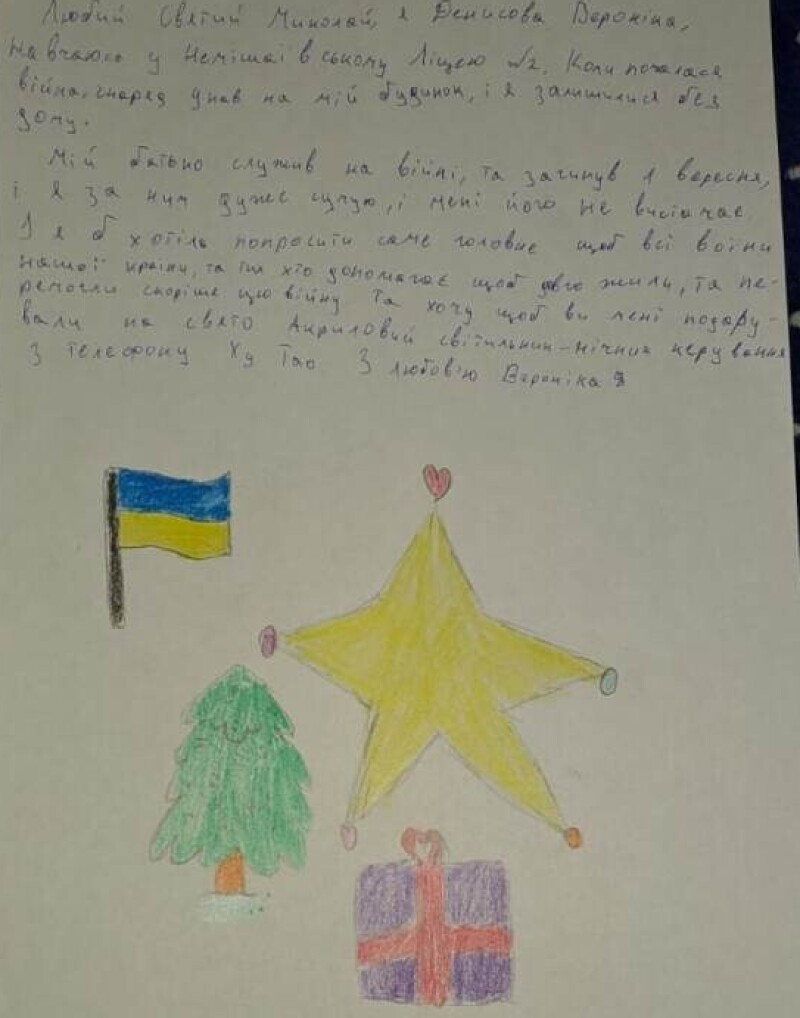 Любий Святий Миколай, я Денисова Вероніка,
навчаюсь у Немішаївському Ліцею №2. Коли почалася
війна, снаряд упав на мій будинок, і я залишилися без
дому.
Мій батько служив на війні, та загинув 1 вересня,
і я за ним дуже сумую, і мені його не вистачає.
І я б хотіла попросити саме головне щоб всі воїни
нашої країни, та їм хто допомагає щоб довго жили, та пе-
ремогли скоріше цю війну. Та хочу щоб ви мені подару-
вали на свято Акриловий світильник-нічник керування
з телефону Ху Тао З любов'ю Вероніка